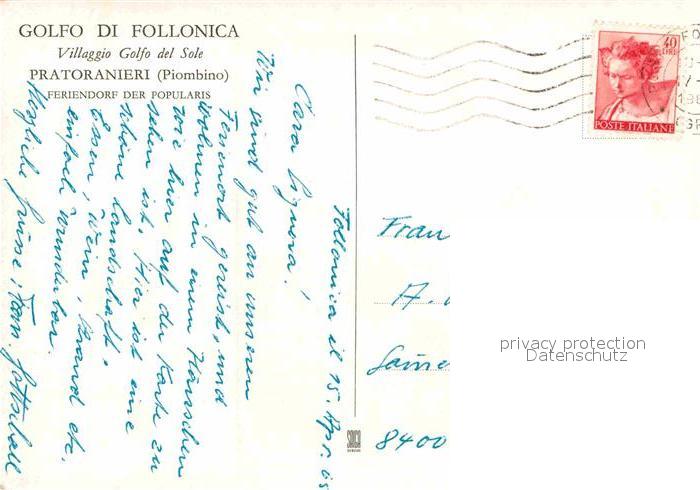 GOLFO DI FOLLONICA
Villaggio Golfo del Sole
PRATORANIERI (Piombino)
FERIENDORF DER POPULARIS
Follonica il 15. Apr. 65
Cara Signora!
Wir sind gut an unseren
Ferienort gereist, und
wohnen in einem Häuschen
wie hier auf der Karte zu
sehen ist. Hier ist eine
schöne Landschaft.
Essen, Wein, Strand etc.
einfach wunderbar.
Herzliche Grüsse: Fam.
40
LIRE
POSTE ITALIANE
Frau
A.
8400
privacy protection
Datenschutz